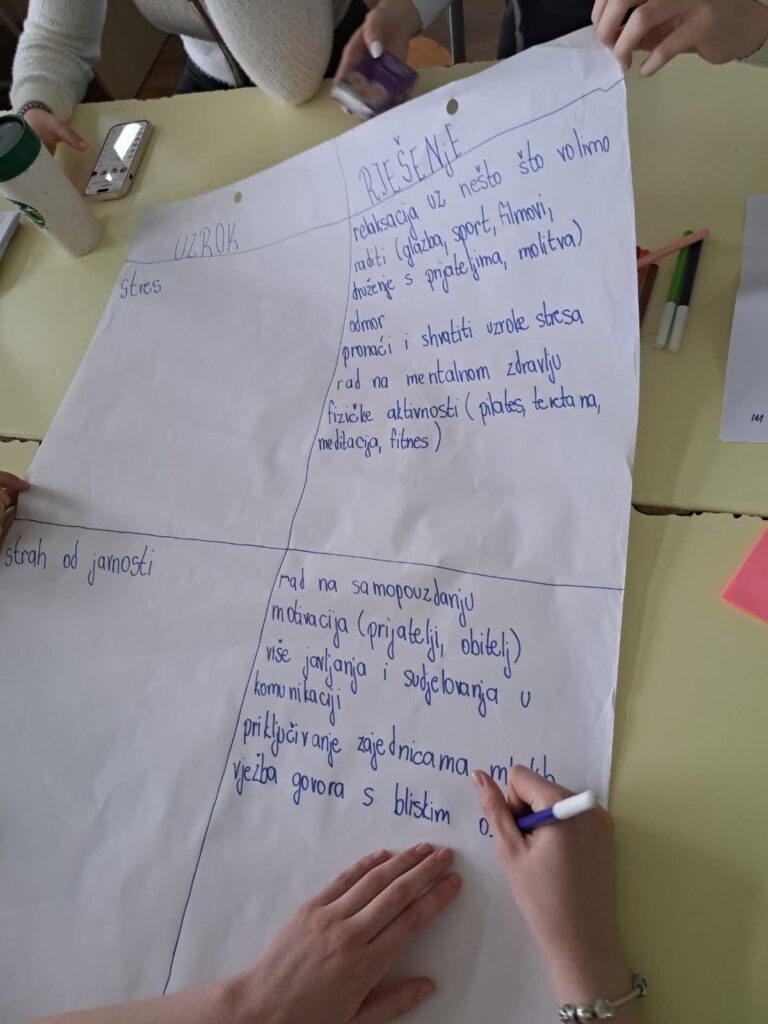 UZROK
RJEŠENjE
stres
relaksacija uz nešto što volimo
raditi (glazba, sport, filmovi,
druženje s prijateljima, molitva)
odmor
pronaći i shvatiti uzroke stresa
rad na mentalnom zdravlju
fizičke aktivnosti (pilates, teretana,
meditacija, fitnes)
strah od javnosti
rad na samopouzdanju
motivacija (prijatelji, obitelj)
više javljanja i sudjelovanja u
komunikaciji
priključivanje zajednicama
vježba govora s bliskim